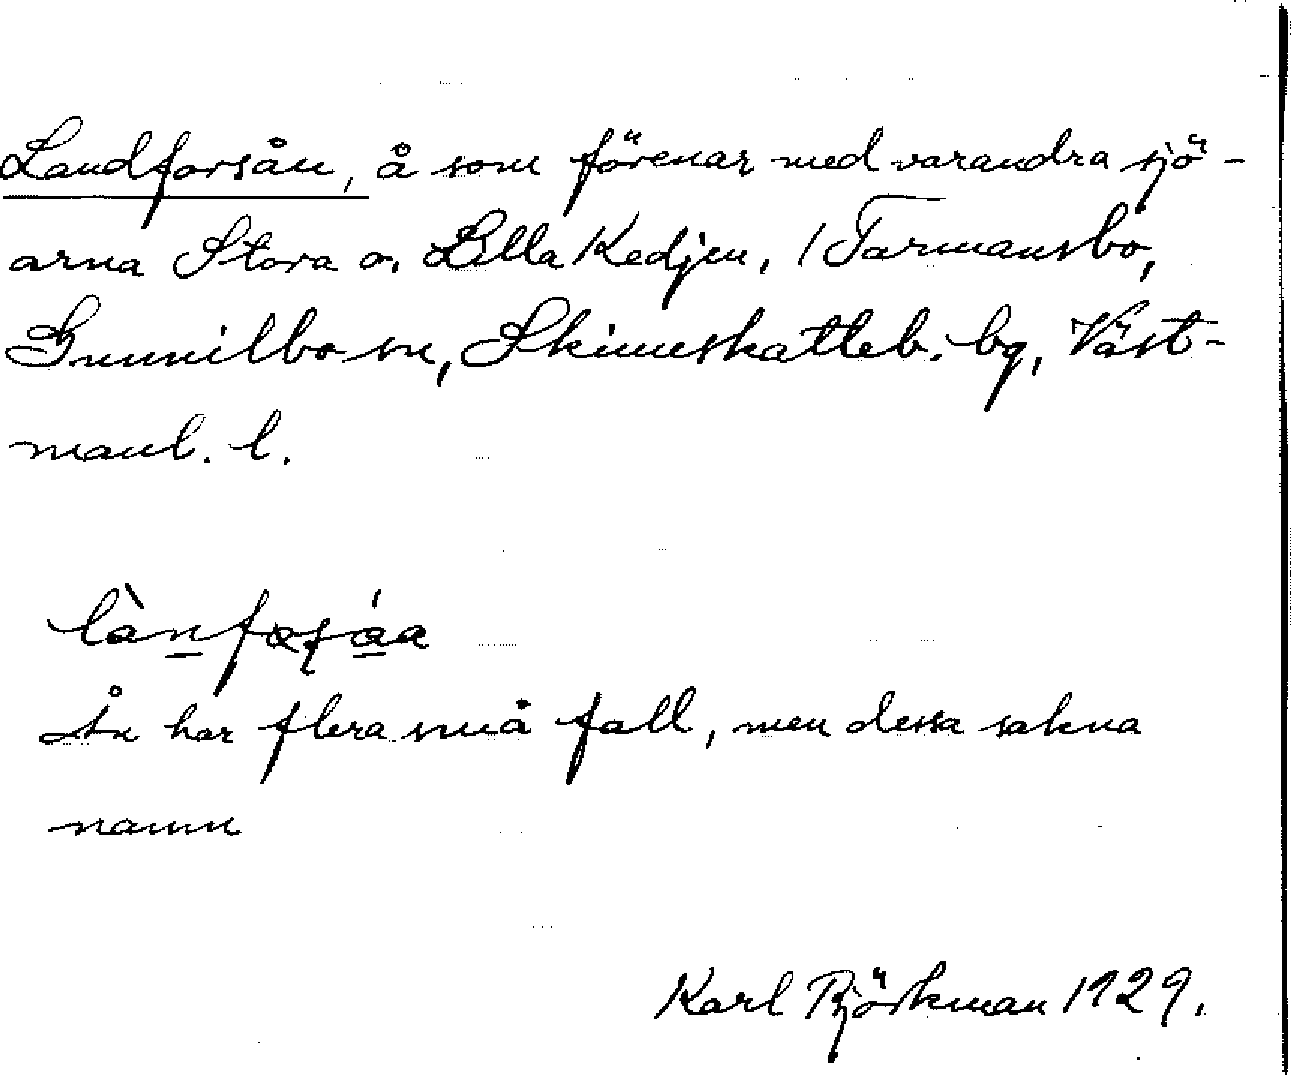 Landforsån, å som förenar med varandra sjö-
arna Stora o. Lilla Kedjen, / Tarmansbo,
Gunnilbo sn, Skinnskatteb. bg, Väst-
manl. l.
Ån har flera små fall, men dessa sakna
namn
Karl Björkman 1929.